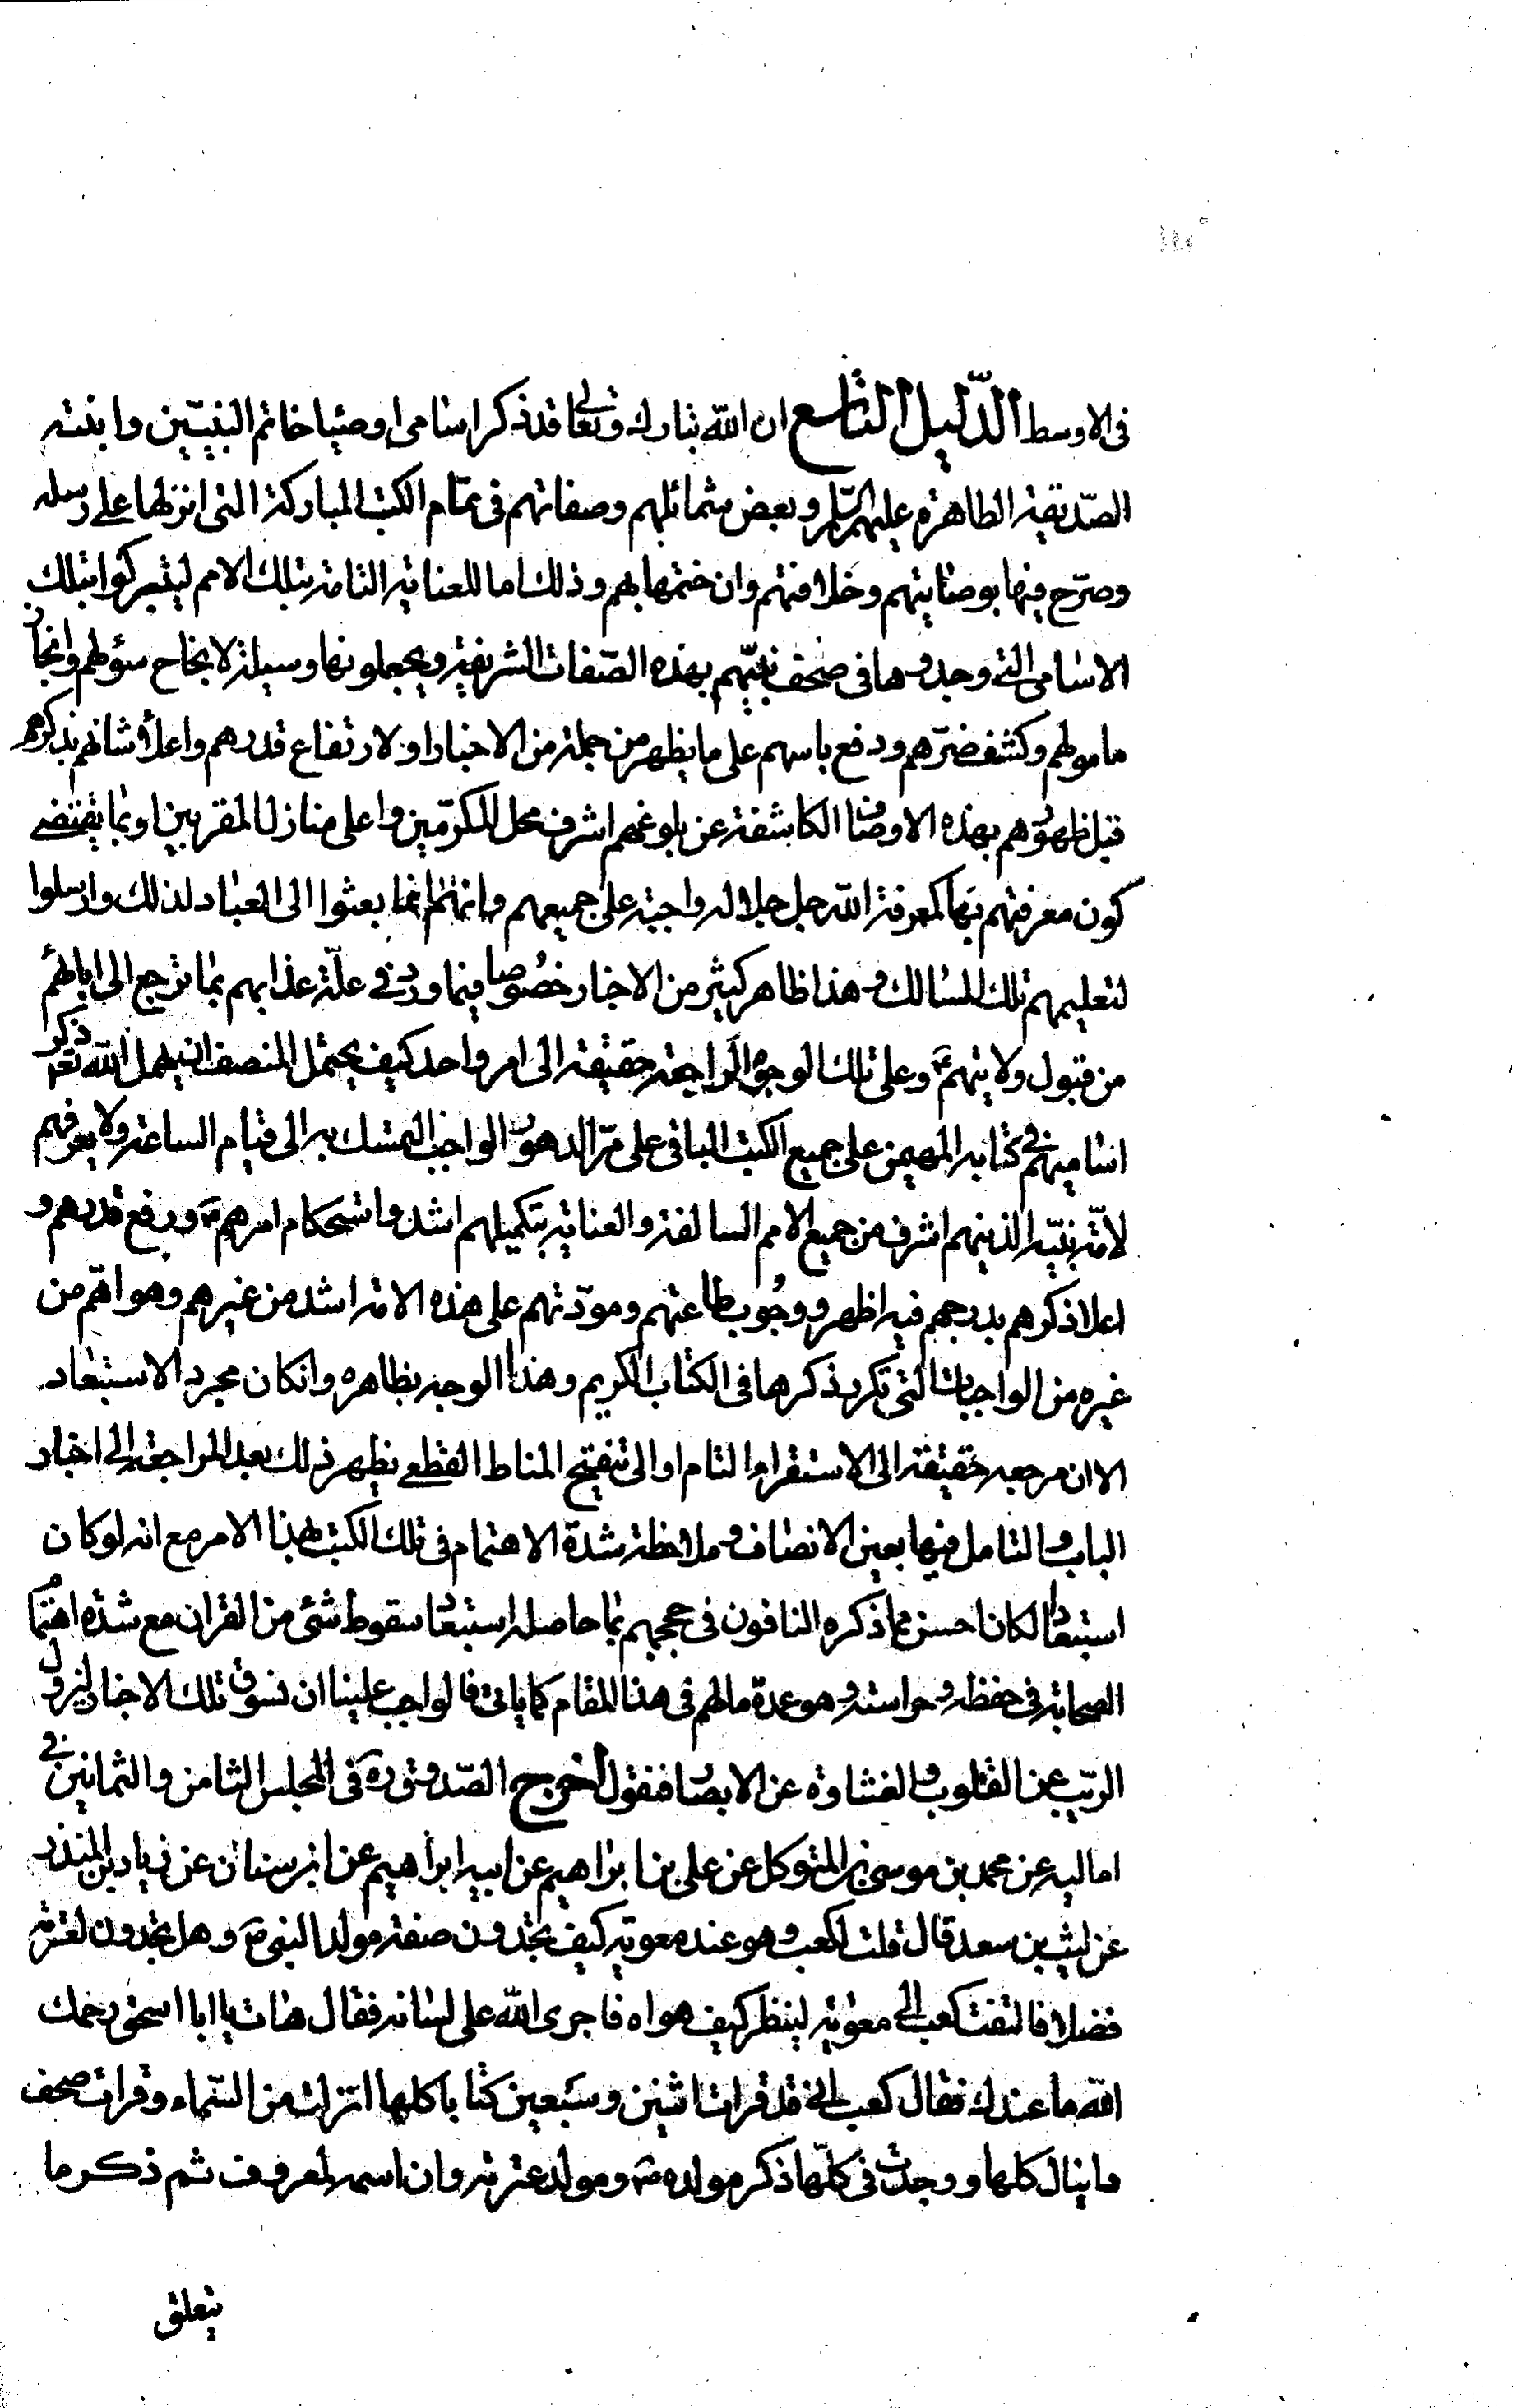 فى الاوسط الدّليل التاسع ان الله تبارك وتعالى قد ذكر اسامى اوصياء خاتم النبيّين وابنته
الصّديقة الطاهرة عليهم السّلام وبعض شمائلهم وصفاتهم فى تمام الكتب المباركة التى انزلها على رسله
وصرّح فيها بوصايتهم وخلافتهم وان ختمها بهم وذلك اما للعناية التامة بتلك الامم ليتبركوا بتلك
الاسامى التى وجدوها فى صحف نبيّهم بهذه الصّفات الشريفة ويجعلونها وسيلة لانجاح سؤلهم وانجاز
مامولهم وكشف ضرّهم ودفع باسهم على ما يظهر من جملة من الاخبار او لارتفاع قدرهم واعلاء شانهم بذكرهم
قبل ظهورهم بهذه الاوصاف الكاشفة عن بلوغهم اشرف محل المكرّمين واعلى منازل المقربين او بما يقتضى
كون معرفتهم بها كمعرفة الله جل جلاله واجبة على جميعهم وانهم انما بعثوا الى العباد لذلك وارسلوا
لتعليمهم تلك المسالك وهذا ظاهر كثير من الاخبار خصوصا فيما ورد فى علّة عذابهم بما ترجع الى ابائهم
من قبول ولايتهم ع وعلى تلك الوجوه الراجعة حقيقة الى امر واحد كيف يحتمل المنصف ان يهمل الله تعالى ذكر
اساميهم فى كتابه المهيمن على جميع الكتب الباقى على مرّ الدهور الواجب التمسك به الى قيام الساعة ولا يعرفهم
لامّة نبيّه الذينهم اشرف من جميع الامم السالفة والعناية بتكميلهم اشد واستحكام امرهم ع ورفع قدرهم و
اعلاء ذكرهم بدرجهم فيه اظهر ووجوب طاعتهم ومودّتهم على هذه الامة اشد من غيرهم وهو اهّم من
غيره من الواجبات التى تكرر ذكرها فى الكتاب الكريم وهذا الوجه بظاهره وانكان مجرد الاستبعاد
الا ان مرجعه حقيقة الى الاستقراء التام او الى تنقيح المناط القطعى يظهر ذلك بعد المراجعة الى اخبار
الباب والتامل فيها بعين الانصاف وملاحظة شدة الاهتمام فى تلك الكتب لهذا الامر مع انه لو كان
استبعادا لكان احسن مما ذكره النافون فى حججهم بما حاصله استبعاد سقوط شئ من القران مع شدة اهتمام
الصحابة فى حفظه وحراسته وهو عمدة مالهم فى هذا المقام كما ياتى فالواجب علينا ان نسوق تلك الاخبار ليزول
الريب عن القلوب والغشاوة عن الابصار فنقول اخرج الصّدوق ره فى المجلس الثامن والثمانين فى
اماليه عن محمد بن موسى بن المتوكل عن على بن ابراهيم عن ابيه ابراهيم عن ابن سنان عن زياد بن المنذر
عن ليث بن سعد قال قلت لكعب وهو عند معوية كيف تجدون صفة مولد النبى ص وهل تجدون لعترته
فضلا فالتفت كعب الى معوية لينظر كيف هواه فاجرى الله على لسانه فقال هات يا ابا اسحق رحمك
الله ما عندك فقال كعب انى قد قرات اثنين وسبعين كتابا كلها انزلت من السّماء وقرات صحف
دانيال كلها ووجدت فى كلّها ذكر مولده ص ومولد عترته وان اسمه لمعروف ثم ذكر ما
يتعلق